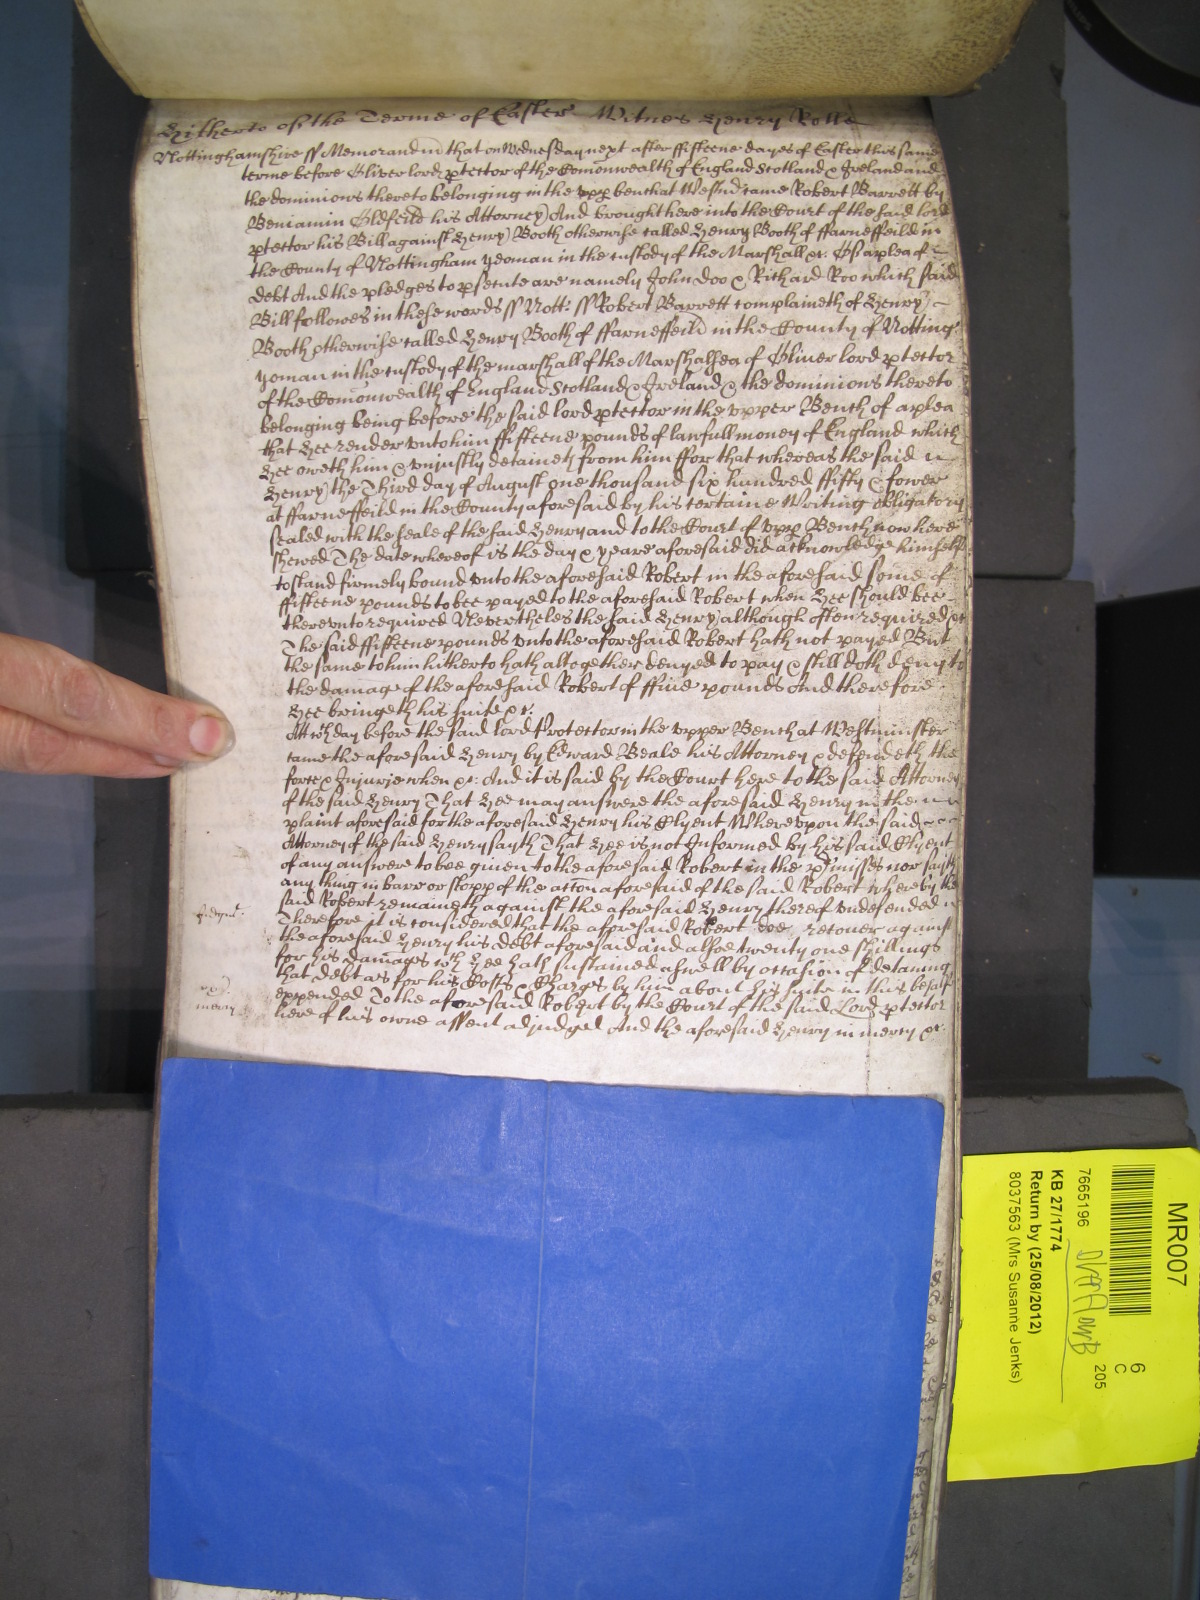 Hitherto of the Terme of Easter Witnes Henry Rolle
Nottinghamshire ss Memorandm that on Wednesday next after ffifteene dayes of Easter this same
terme before Oliver lord ptector of the Comonwealth of England Scotland & Ireland and
the dominions thereto belonging in the upp bench at Westmr came Robert Barrett by
Beniamin Oldfeild his Attorney And brought here into the Court of the said lord
ptector his Bill against Henry Booth otherwise called Henry Booth of ffarneffeild in
the County of Nottingham yeoman in the custody of the Marshall &c: Of a plea of
debt And the pledges to psecute are namely John Doo & Richard Roo which said
Bill followes in these words ss Nott: ss Robert Barrett complaineth of Henry
Booth otherwise called Henry Booth of ffarneffeild in the County of Notting:
yoman in the custody of the marshall of the Marshalsea of Oliver lord ptector
of the Comonwealth of England Scotland & Ireland & the dominions thereto
belonging being before the said lord ptector in the upper Bench of a plea
that Hee render unto him ffifteene pounds of lawfull money of England which
Hee oweth him & uniustly detaineth from him ffor that whereas the said
Henry the Third day of August one thousand six hundred ffifty & fower
at ffarneffeild in the County aforesaid by his certaine Writing obligatory
sealed with the seale of the said Henry and to the Court of upp Bench now here
shewed The date whereof is the day & yeare aforesaid did acknowledge himself
to stand firmely bound unto the aforesaid Robert in the aforesaid some of
ffifteene pounds to bee payed to the aforesaid Robert when Hee should bee
thereunto required Nevertheles the said Henry although often required &c
The said ffifteene pounds unto the aforesaid Robert hath not payed But
the same to him hitherto hath altogether denyed to pay & still doth deny to
the damag of the aforesaid Robert of ffiue pounds And therefore
Hee bringeth his suite &c:
Att wch day before the said lord Protector in the upper Bench at Westminster
came the aforesaid Henry by Edward Beale his Attorney & defendeth the
force & Injurie when &c: And it is said by the Court here to the said Attorney
of the said Henry That Hee may answere the aforesaid Henry in the
plaint aforesaid for the aforesaid Henry his Clyent Whereupon the said
Attorney of the said Henry sayth That Hee is not Informed by his said Clyent
of any answere to bee giuen to the aforesaid Robert in the pmisses nor sayth
any thing in barr or stopp of the accon aforesaid of the said Robert whereby the
said Robert remaineth against the aforesaid Henry thereof undefended
Judgmt: Therefore it is considered that the aforesaid Robert doe recouer against
the aforesaid Henry his debt aforesaid and alsoe twenty one shillings
for his damages wch Hee hath sustained aswell by occasion of detaining
that debt as for his Costs & Charges by him about his suite in this behalf
expended To the aforesaid Robert by the Court of the said Lord ptector
mercy here of his owne assent adjudged And the aforesaid Henry in mercy &c:
MR007
6
C
205
7665196
KB 27/1774
Return by (25/08/2012)
8037563 (Mrs Susanne Jenks)